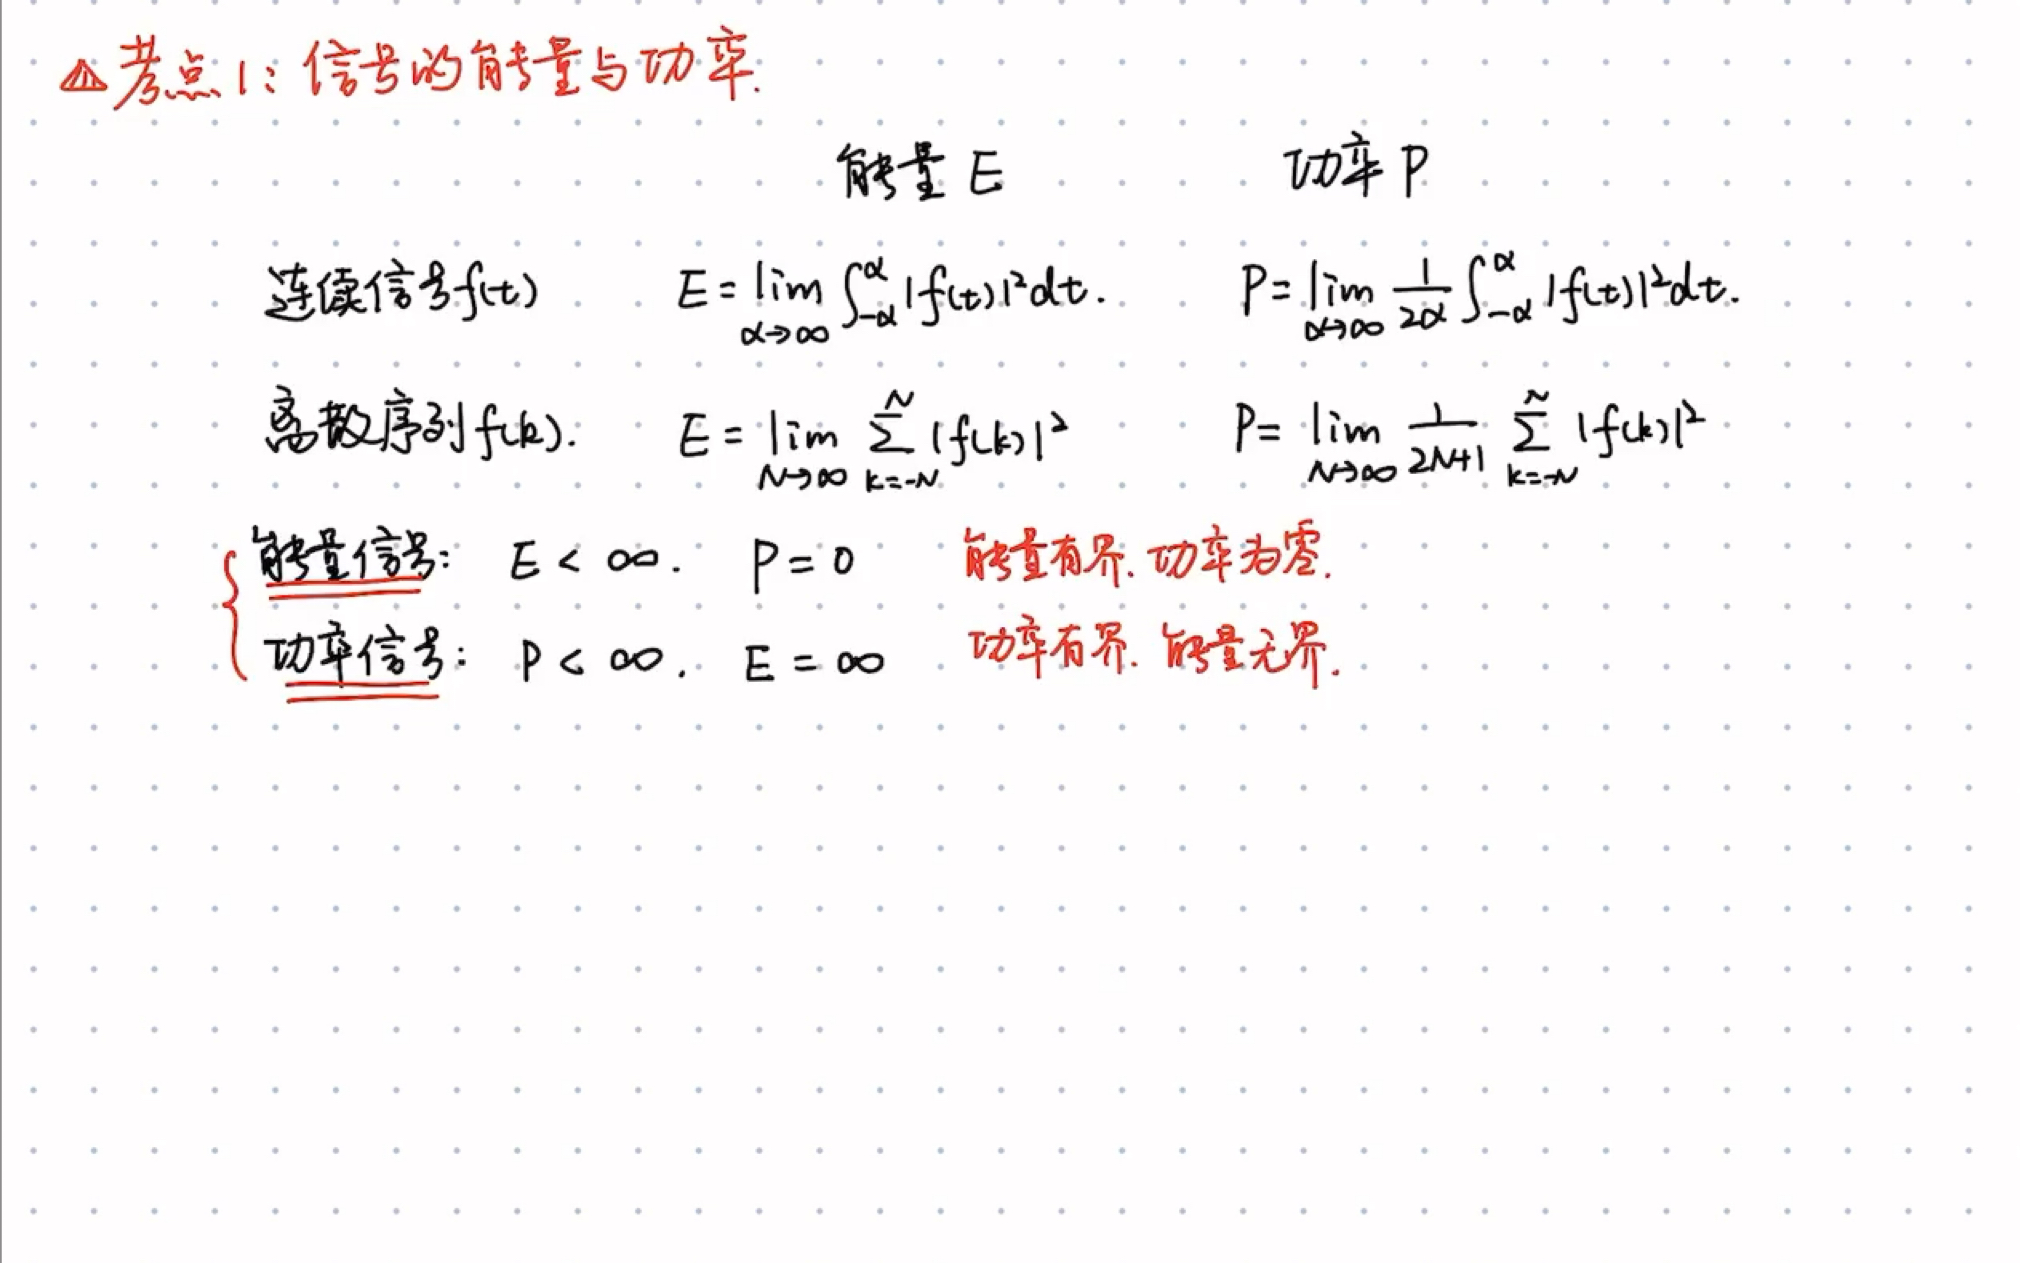 考点1：信号的能量与功率.
能量 E 功率 P
连续信号f(t) E = lim α→∞ ∫_{-α}^{α} |f(t)|²dt. P = lim α→∞ 1/2α ∫_{-α}^{α} |f(t)|²dt.
离散序列f(k). E = lim N→∞ ∑_{k=-N}^{N} |f(k)|² P = lim N→∞ 1/2N+1 ∑_{k=-N}^{N} |f(k)|²
能量信号： E < ∞. P = 0 能量有界. 功率为零.
功率信号： P < ∞. E = ∞ 功率有界. 能量无界.